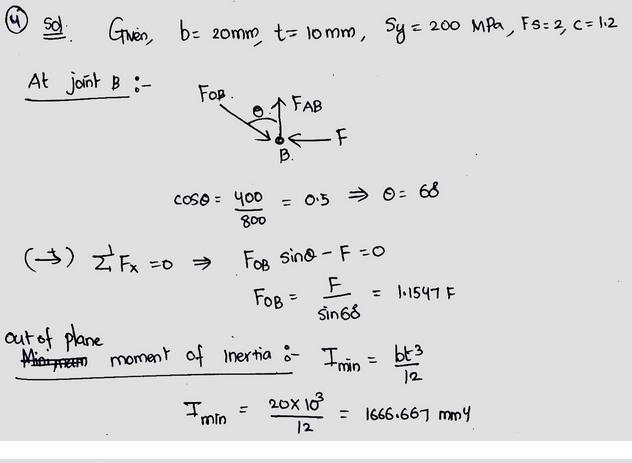 4 Sol. Given, b= 20mm, t= 10mm, Sy = 200 MPa, Fs=2, c=1.2
At joint B :-
FOB. θ. FAB
F
B.
cosθ = 400/800 = 0.5 ⇒ θ= 60
(→) ΣFx =0 ⇒ FOB sinθ - F =0
FOB = F/sin60 = 1.1547 F
out of plane
moment of Inertia :- Imin = bt3/12
Imin = 20X10^3/12 = 1666.667 mm4